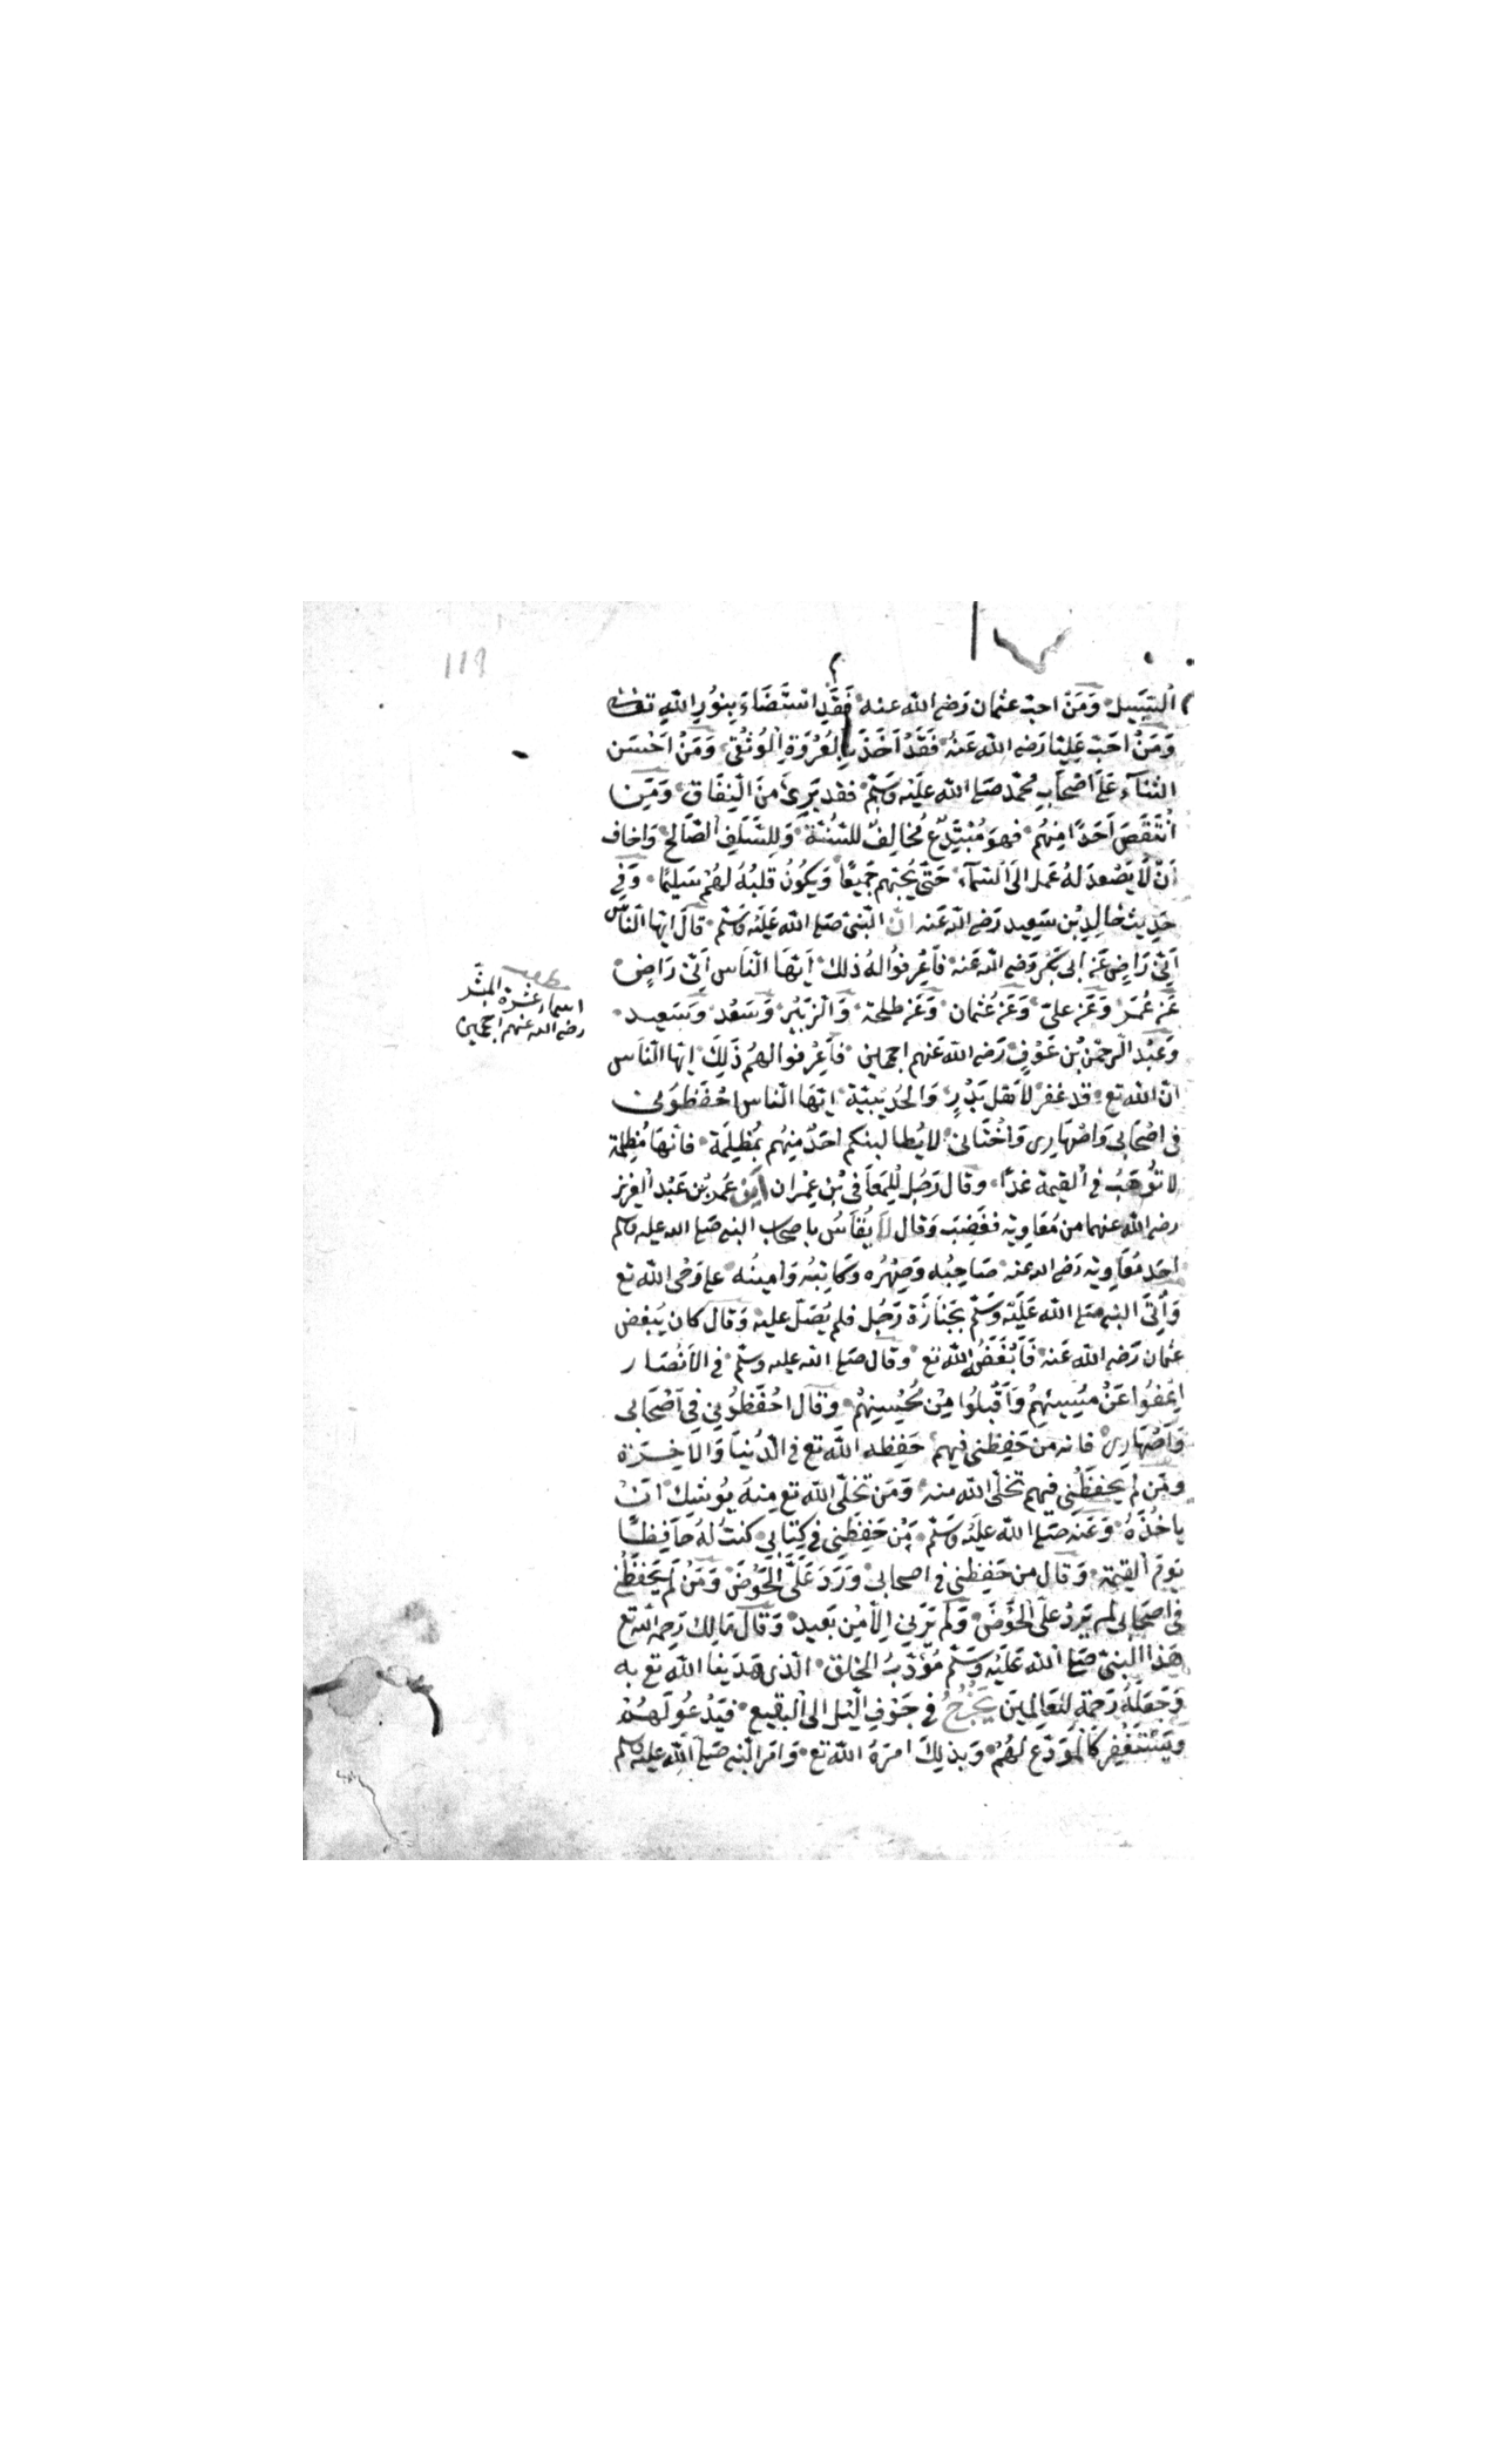 ١١٩
السَّبِيل وَمَنْ احبّ عثمان رَضى الله عنه فَقَدِ اسْتَضَاءَ بِنُورِ اللهِ تعالى
وَمَنْ احَبّ عَلِيًّا رَضى الله عَنهُ فَقَدْ اَخَذَ بِالعُرْوَةِ الْوُثْقَى وَمَنْ اَحْسَن
الثَّنَآءَ عَلَى اَصْحَابِ مُحَمَّد صَلى الله عَلَيْهِ وَسَلّم فقد بَرِئَ مِنَ النِّفَاق وَمَنِ
انْتَقَصَ اَحَدًا مِنهُم فهوَ مُبْتَدِعٌ مُخالِفٌ للسُّنَّة وَلِلسَّلَفِ الصَّالِح وَاخاف
اَنْ لَا يَصْعدَ لهُ عَمل الىَ السَّمآء حَتّى يُحِبَّهم جَمِيعًا وَيَكُونُ قلبُهُ لهُمْ سَلِيمًا وَفِى
حَدِيث خالِدِ بْن سَعِيد رَضى الله عَنه انّ النّبىّ صَلى الله عَلَيْه وَسَلّم قالَ ايّها النّاس
اَنِّى رَاضٍ عَنْ ابى بَكْر رَضى الله عَنه فاَعْرِفوُا لهُ ذلك اَيّهَا النّاس اَنِّى رَاضٍ
عَنْ عُمَر وَعَنْ علىّ وَعَنْ عُثمان وَعَنْ طلحة وَالزّبَيْر وَسَعْد وَسَعِيد
وَعَبْد الرّحمٰن بْن عَوْفٍ رَضى الله عَنهم اجمعين فاَعْرِفوا لهُم ذَلِكَ ايّها النّاس
انّ الله تع قد غفر لاَهْل بَدْرٍ وَالحُدَيْبِيَة ايّهَا النّاس احْفَظُونى
فى اصْحَابى وَاصْهَارِى وَاَخْتَانى لا يُطالبنكم احَدٌ مِنهُم بمَظلِمَة فانّهَا مَظلِمة
لا تُوهَبُ فى القيمة غدًا وقال رَجُل لِلمُعَافى بْن عِمْران اَيْنَ عُمَرُ بْن عَبْد الْعَزِيز
رضى الله عنهما من مُعَاوِيَه فغَضِبَ وَقال لا يُقَاسُ باصحاب النبى صَلى الله عليه وسلم
احَد مُعَاوِيَه رَضى الله عنه صَاحِبُه وَصِهْرُه وَكاتِبُه وَامِينُه على وَحْى الله تع
وَاُتِىَ النبى صَلى الله عَلَيْه وَسَلّم بجَنازَة رَجُل فلم يُصَلّ عليه وَقالَ كان يُبْغِض
عثمان رَضى الله عَنه فَاَبْغَضَهُ الله تع وقال صَلى الله عليه وسلّم فى الاَنْصَار
اعْفُوا عَنْ مُسِيئِهِمْ وَاَقْبَلُوا مِنْ مُحْسِنِهِمْ وقال احْفَظُونِى فى اَصْحَابى
وَاَصْهَارِى فانه مَن حَفِظنى فيهم حَفِظه الله تع فى الدُّنيَا وَالاخِرَة
ومَن لم يحفَظْنِى فيهم تخَلَّى الله منه وَمَن تخَلّى الله تع مِنهُ يُوشِك انْ
ياخُذَهُ وَعَنه صَلى الله عليه وَسَلّم مَنْ حَفِظنِى فى كتابى كنتُ لهُ حَافِظًا
يَومَ القِيمَة وَقال من حَفِظنى فى اصحابى وَرَدَ عَلَىَّ الْحَوْضَ وَمَنْ لَمْ يَحْفَظْنِى
فى اصحَابى لم يَرِدْ على الحَوْضَ وَلم يَرَنِى الاّ مِنْ بَعِيد وَقالَ مَالِك رَحِمه الله تع
هَذا النّبىّ صَلى الله عَلَيْه وَسَلّم مُؤَدّبُ الخلق الذى هَدَينا الله تع به
وَجَعَلهُ رَحْمَة للعَالمِين يَخْرُجُ فى جَوْفِ اللّيْل الى البَقِيع فيَدْعُو لهُمْ
ويَسْتَغْفِر كالمُوَدِّع لهُمْ وَبذلِكَ امَرَهُ الله تع وَامَرَ النّبى صَلى الله عليه وسلم
مطلب
اسماء عشرة المبشر
رضى الله عنهم اجمعين